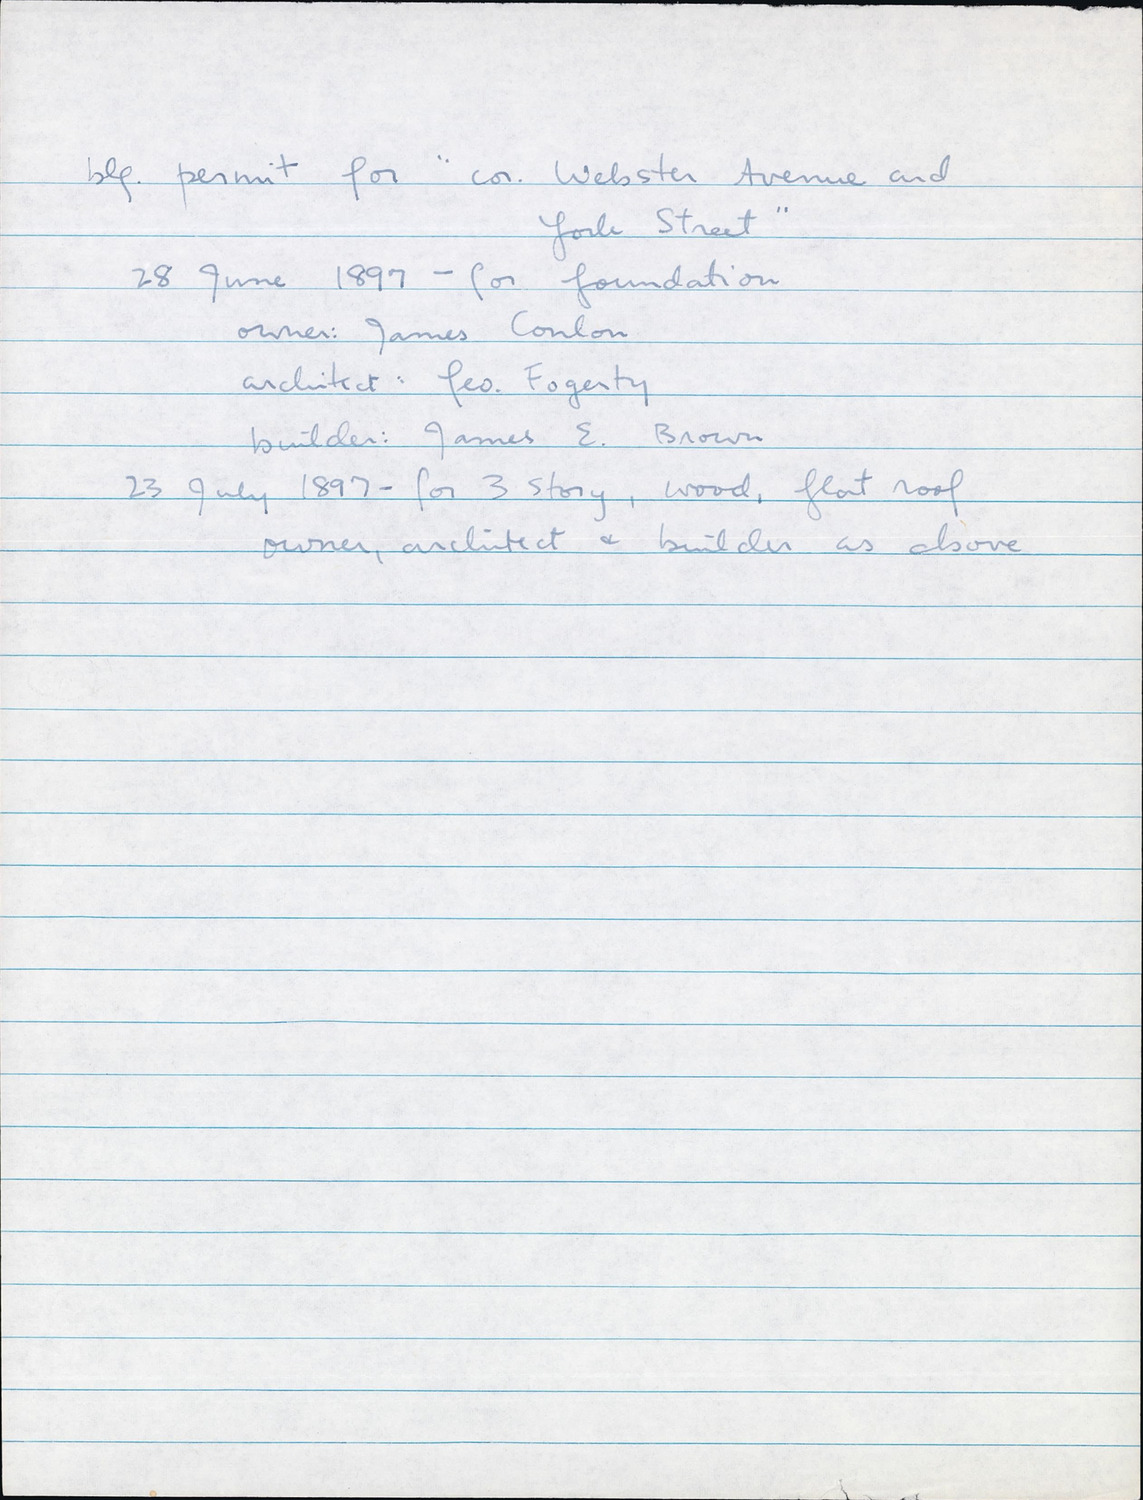 blg. permit for "cor. Webster Avenue and
York Street"
28 June 1897 - for foundation
owner: James Conlon
architect: Geo. Fogerty
builder: James E. Brown
23 July 1897 - for 3 story, wood, flat roof
owner, architect & builder as above